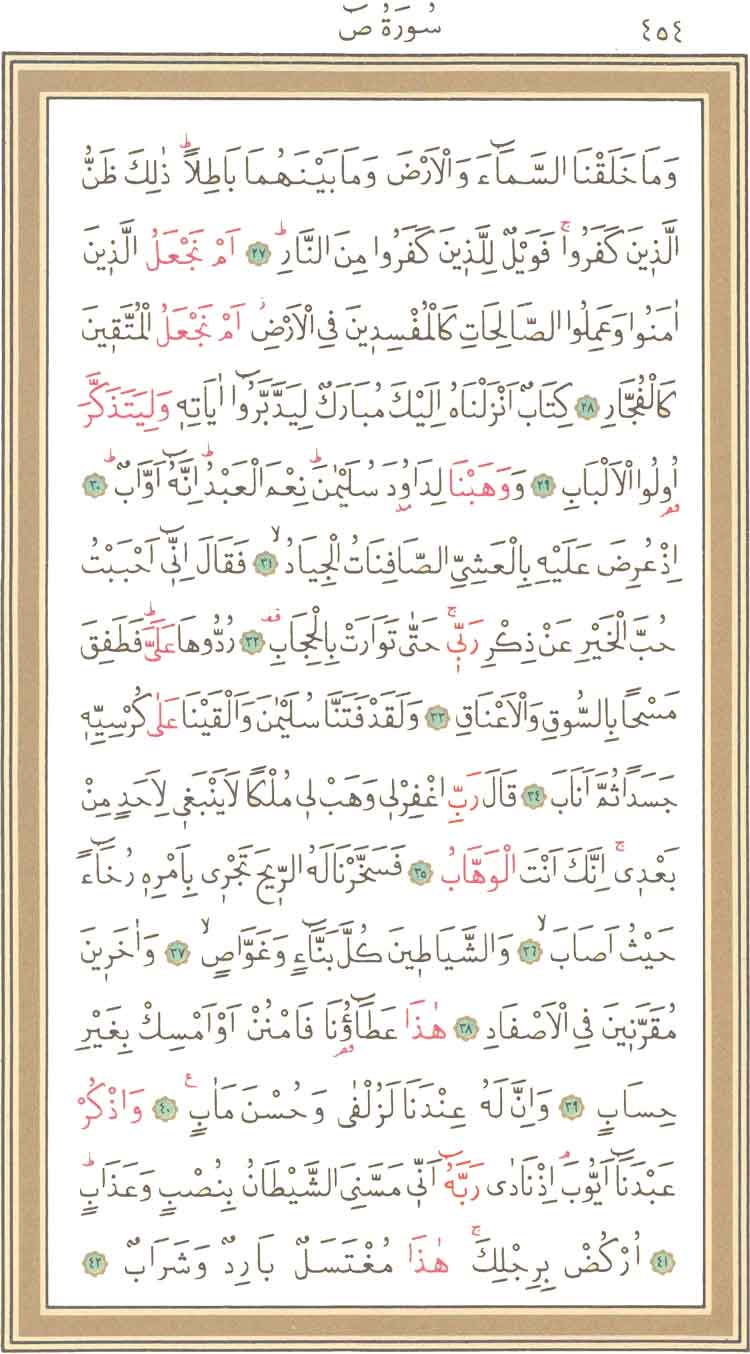 ٤٥٤ سُورَةُ صٓ
وَمَا خَلَقْنَا السَّمَٓاءَ وَالْاَرْضَ وَمَا بَيْنَهُمَا بَاطِلًاۜ ذٰلِكَ ظَنُّ
الَّذ۪ينَ كَفَرُواۚ فَوَيْلٌ لِلَّذ۪ينَ كَفَرُوا مِنَ النَّارِۜ ٢٧ اَمْ نَجْعَلُ الَّذ۪ينَ
اٰمَنُوا وَعَمِلُوا الصَّالِحَاتِ كَالْمُفْسِد۪ينَ فِي الْاَرْضِۘ اَمْ نَجْعَلُ الْمُتَّق۪ينَ
كَالْفُجَّارِ ٢٨ كِتَابٌ اَنْزَلْنَاهُ اِلَيْكَ مُبَارَكٌ لِيَدَّبَّرُٓوا اٰيَاتِه۪ وَلِيَتَذَكَّرَ
اُو۬لُوا الْاَلْبَابِ ٢٩ وَوَهَبْنَا لِدَاوُ۫دَ سُلَيْمٰنَۜ نِعْمَ الْعَبْدُۜ اِنَّهُٓ اَوَّابٌۜ ٣٠
اِذْ عُرِضَ عَلَيْهِ بِالْعَشِيِّ الصَّافِنَاتُ الْجِيَادُۙ ٣١ فَقَالَ اِنّ۪ٓي اَحْبَبْتُ
حُبَّ الْخَيْرِ عَنْ ذِكْرِ رَبّ۪يۚ حَتّٰى تَوَارَتْ بِالْحِجَابِ۠ ٣٢ رُدُّوهَا عَلَيَّۜ فَطَفِقَ
مَسْحًا بِالسُّوقِ وَالْاَعْنَاقِ ٣٣ وَلَقَدْ فَتَنَّا سُلَيْمٰنَ وَاَلْقَيْنَا عَلٰى كُرْسِيِّه۪
جَسَدًا ثُمَّ اَنَابَ ٣٤ قَالَ رَبِّ اغْفِرْ ل۪ي وَهَبْ ل۪ي مُلْكًا لَا يَنْبَغ۪ي لِاَحَدٍ مِنْ
بَعْد۪يۚ اِنَّكَ اَنْتَ الْوَهَّابُ ٣٥ فَسَخَّرْنَا لَهُ الرّ۪يحَ تَجْر۪ي بِاَمْرِه۪ رُخَٓاءً
حَيْثُ اَصَابَۙ ٣٦ وَالشَّيَاط۪ينَ كُلَّ بَنَّٓاءٍ وَغَوَّاصٍۙ ٣٧ وَاٰخَر۪ينَ
مُقَرَّن۪ينَ فِي الْاَصْفَادِ ٣٨ هٰذَا عَطَٓاؤُ۬نَا فَامْنُنْ اَوْ اَمْسِكْ بِغَيْرِ
حِسَابٍ ٣٩ وَاِنَّ لَهُ عِنْدَنَا لَزُلْفٰى وَحُسْنَ مَاٰبٍ۟ ٤٠ وَاذْكُرْ
عَبْدَنَٓا اَيُّوبَۢ اِذْ نَادٰى رَبَّهُٓ اَنّ۪ي مَسَّنِيَ الشَّيْطَانُ بِنُصْبٍ وَعَذَابٍۜ
٤١ اُرْكُضْ بِرِجْلِكَۚ هٰذَا مُغْتَسَلٌ بَارِدٌ وَشَرَابٌ ٤٢